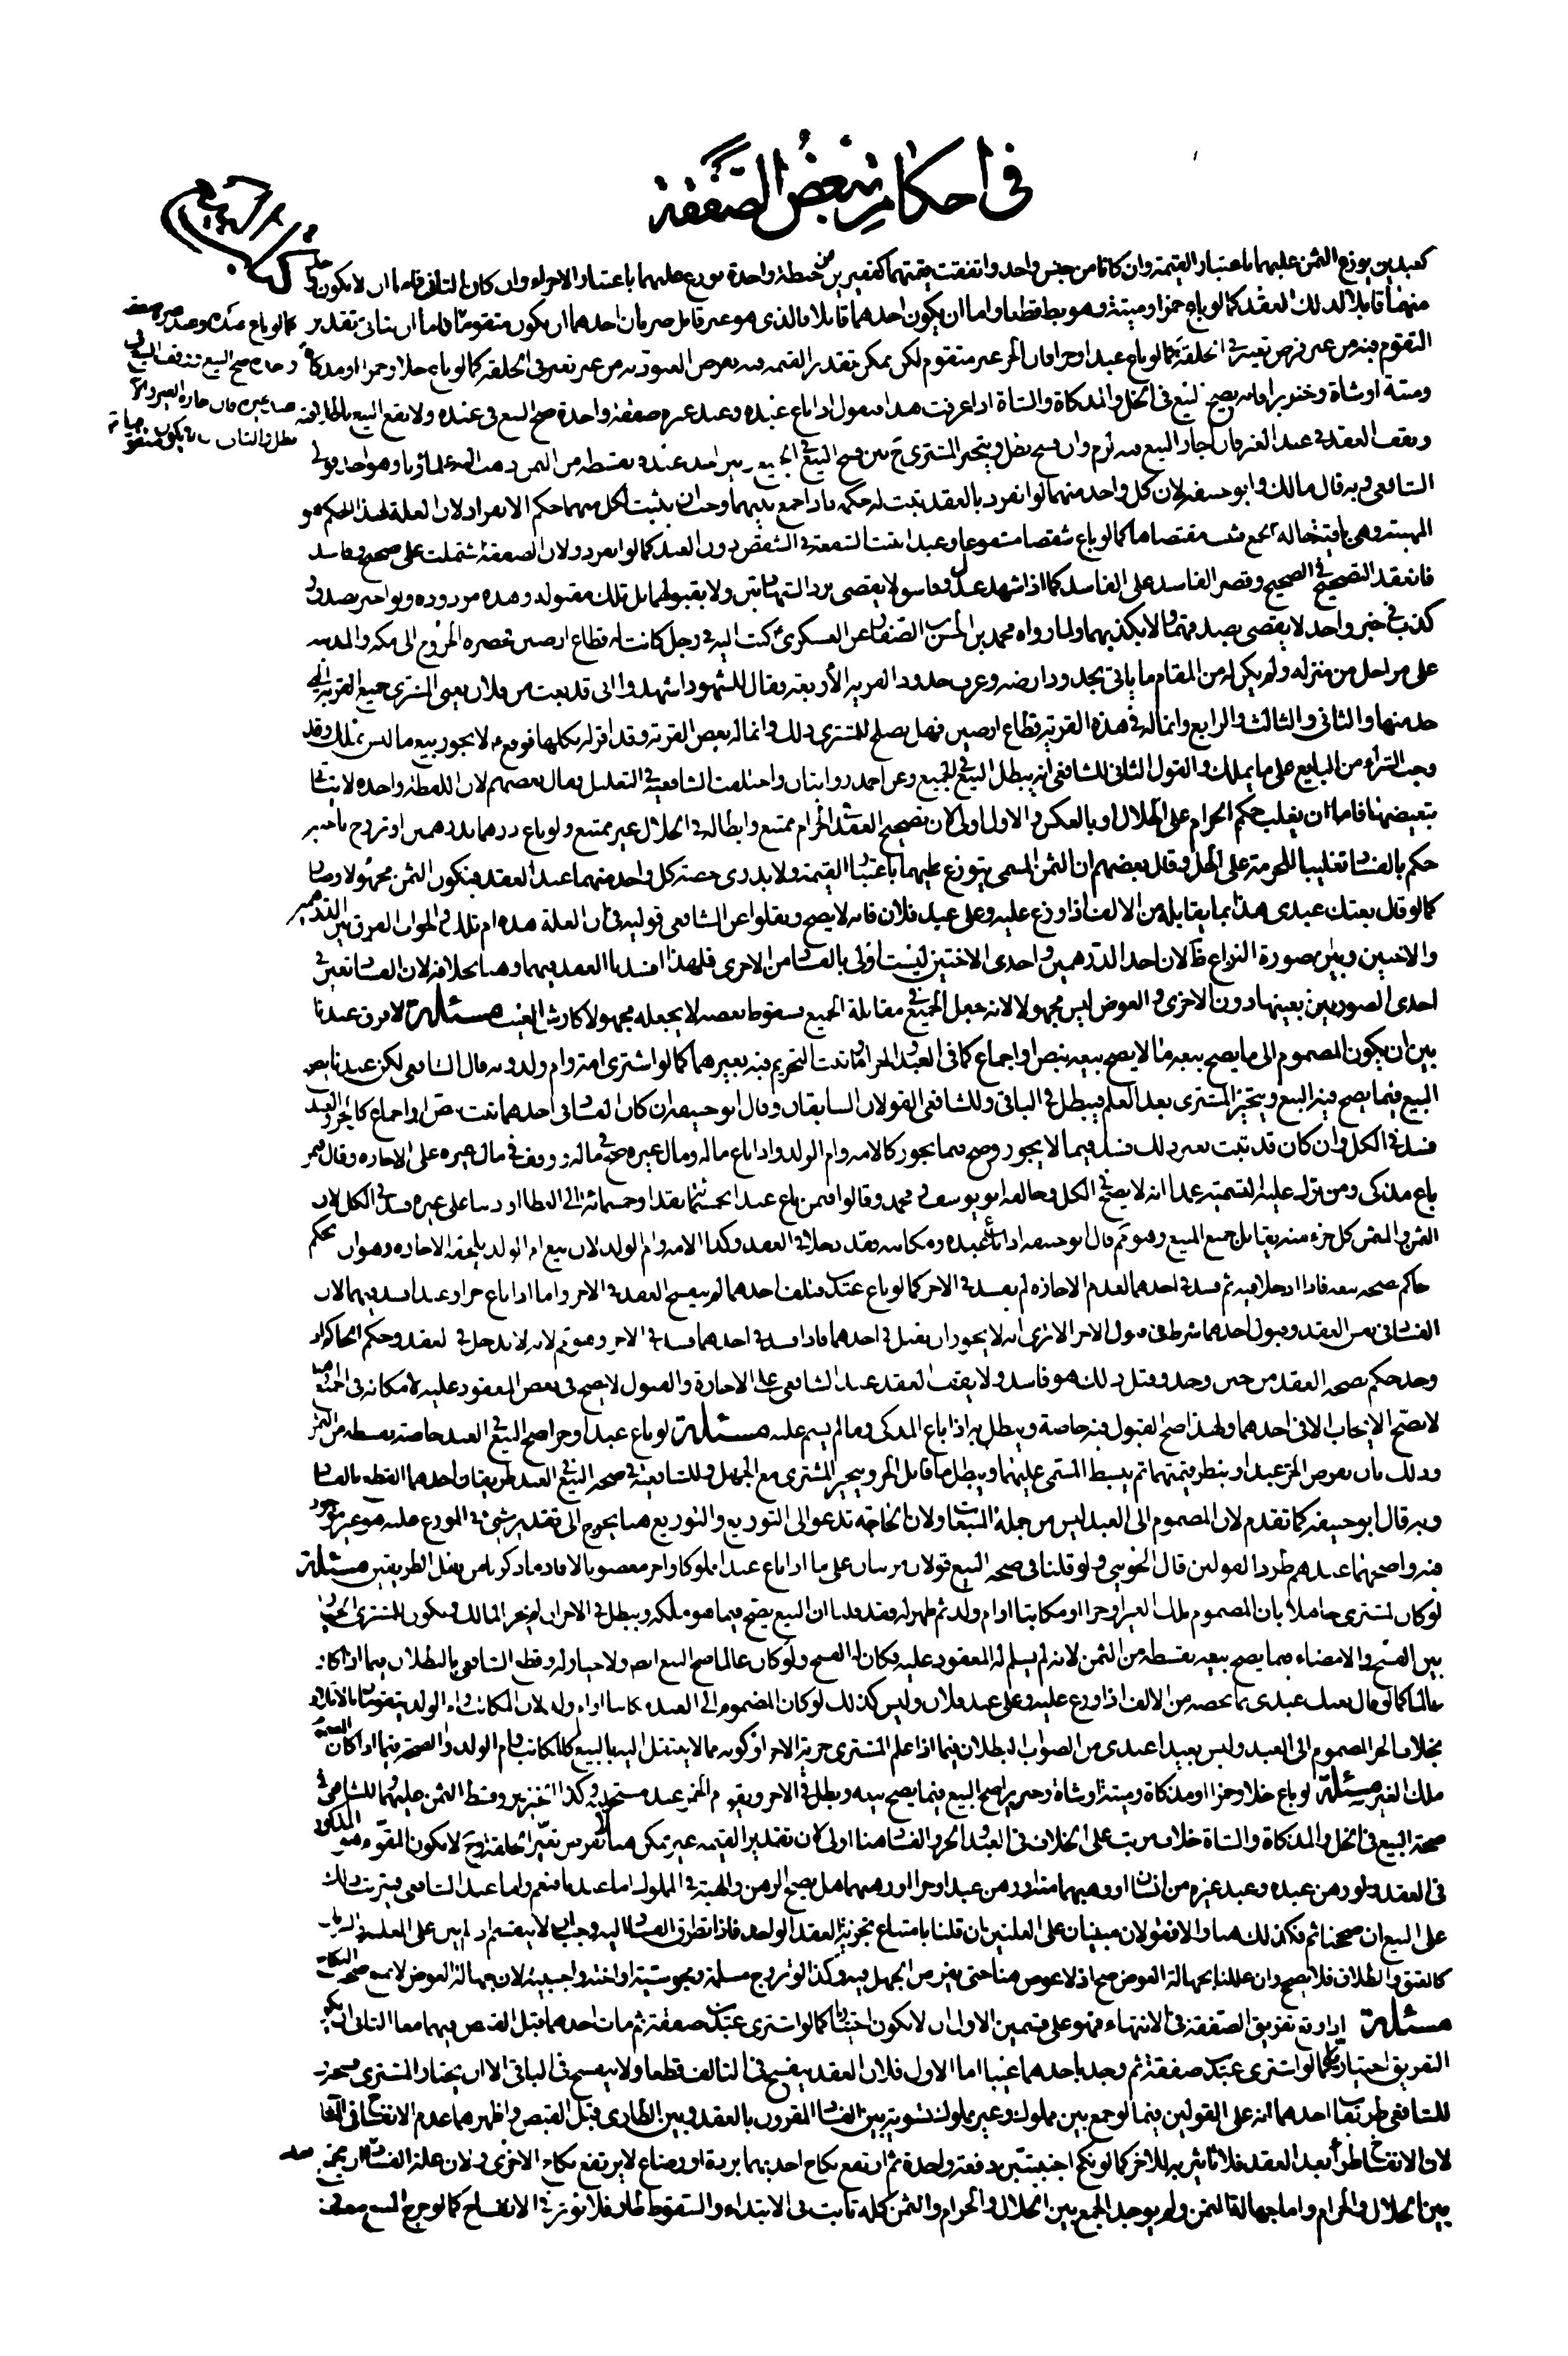 في احكام تبعض الصفقة
كعبدين يوزع الثمن عليهما باعتبار القيمة وان كانا من جنس واحد واتفقت قيمتهما كقفيزين من حنطة واحدة يوزع عليهما باعتبار الاجزاء وان كان الثاني فاما ان لا يكون
منهما قابلا لذلك العقد كما لو باع خمرا وميتة وهو بط قطعا واما ان يكون احدهما قابلا فالذي هو غير قابل ضربان احدهما ان يكون متقوما فاما ان يتاتى تقدير
التقوم فيه من غير فرض تغير في الخلقة كما لو باع عبدا وحرا فان الحر غير متقوم لكن يمكن تقدير القيمة فيه بفرض العبودية من غير تغير في الخلقة كما لو باع خلا وخمرا او مذكاة
وميتة او شاة وخنزيرا فانه يصح البيع في الخل والمذكاة والشاة اذا عرفت هذا فنقول اذا باع عبده وعبد غيره صفقة واحدة صح البيع في عبده ولا يقع البيع باطلا
ويقف العقد في عبد الغير فان اجاز البيع فيه لزم وان فسخ بطل ويتخير المشتري ح بين فسخ البيع في الجميع وبين اخذ عبده بقسطه من الثمن ذهب اليه علماؤنا وهو احد قولي
الشافعي وبه قال مالك وابو حنيفة لان كل واحد منهما لو انفرد بالعقد ثبت له حكمه فاذا جمع بينهما وجب ان يثبت لكل منهما حكم الانفراد لان العلة لهذا الحكم هو
كما لو باع شقصا مشفوعا وعبدا تثبت الشفعة في الشقص دون العبد كما لو انفرد ولان الصفقة اشتملت على صحيح وفاسد
فانعقد التصحيح في الصحيح وقصر الفاسد على الفاسد كما اذا شهد عدل وفاسق لا يقضى برد الشهادتين ولا بقبولهما بل تلك مقبولة وهذه مردودة ولو اخبر بصدق و
كذب في خبر واحد لا يقضى بصدقهما ولا بكذبهما ولما رواه محمد بن الحسن الصفار عن العسكري ع كتب اليه في رجل كانت له قطاع ارضين فحضره الخروج الى مكة والمدينة
على مراحل من منزله ولم يكن له من المقام ما ياتي بحدود ارضه وعرف حدود القرية الاربعة فقال للشهود اشهدوا اني قد بعت من فلان يعني المشتري جميع القرية التي
حد منها والثاني والثالث والرابع وانما له في هذه القرية قطاع ارضين فهل يصلح للمشتري ذلك وانما له بعض القرية وقد اقر له بكلها فوقع ع لا يجوز بيع ما ليس بملك وقد
وجب الشراء من البايع على ما يملك والقول الثاني للشافعي انه يبطل البيع في الجميع وعن احمد روايتان واختلفت الشافعية في التعليل فقال بعضهم لان اللفظة واحدة لا يتاتى
تبعيضها فاما ان يغلب حكم الحرام على الحلال او بالعكس والاول اولى لان تصحيح العقد في الحرام ممتنع وابطاله في الحلال غير ممتنع ولو باع درهما بدرهمين او تزوج باختين
حكم بالفساد تغليبا للحرمة على الحل وقال بعضهم ان الثمن المسمى يتوزع عليهما باعتبار القيمة ولا يدرى حصة كل واحد منهما عند العقد فيكون الثمن مجهولا وصار
كما لو قال بعتك عبدي هذا بما يقابله من الالف اذا وزع عليه وعلى عبد فلان فانه لا يصح ونقلوا عن الشافعي قوليه في ان العلة هذه ام تلك والجواب الفرق بين الدرهمين
والاختين وبين صورة النزاع ظ لان احد الدرهمين واحدى الاختين ليست اولى بالفساد من الاخرى فلهذا افسدنا العقد فيهما وهنا بخلافه لان الفساد تعين في
احدى الصورتين بعينها دون الاخرى والعوض ليس مجهولا لانه جعل الجميع في مقابلة الجميع وسقوط بعضه لا يجعله مجهولا كارش العيب مسئلة لا فرق عندنا
بين ان يكون المضموم الى ما يصح بيعه مما لا يصح بيعه بنص او اجماع كما في العبد والحر او ما ثبت التحريم فيه بغيرهما كما لو اشترى امة وام ولد وبه قال الشافعي لكن عندنا يصح
البيع فيما يصح فيه البيع ويتخير المشتري بعد العلم ويبطل في الباقي وللشافعي القولان السابقان وقال ابو حنيفة ان كان الفساد في احدهما ثبت بنص او اجماع كالحر والعبد
فسد في الكل وان كان قد ثبت بغير ذلك فسد فيما لا يجوز وصح فيما يجوز كالامة وام الولد واذا باع ماله ومال غيره صح في ماله ووقف في مال غيره على الاجازة وقال فيمن
باع مذكى ومن ترك عليه التسمية عمدا انه لا يصح في الكل وخالفه ابو يوسف ومحمد وقالوا فيمن باع عبدا بخمسمائة نقدا وخمسمائة الى العطا او دينا على غيره فسد في الكل لان
الثمن والمثمن كل جزء منه يقابل جميع المبيع وهو ثم قال ابو حنيفة اذا باع عبده ومكاتبه فقد دخلا في العقد وكذا الامة وام الولد لان بيع ام الولد يلحقه الاجازة وهو ان يحكم
حاكم بصحة بيعه فاذا دخلا فيه ثم فسد في احدهما لعدم الاجازة لم يفسد في الاخر كما لو باع عبدين فتلف احدهما لم ينفسخ العقد في الاخر واما اذا باع حرا وعبدا فسد فيهما لان
الفساد في نفس العقد وقبول احدهما شرط في قبول الاخر الا ترى انه لا يجوز ان يقبل في احدهما فاذا فسد في احدهما فسد في الاخر وهو ثم لانه لا يدخل في العقد وحكم الحاكم اذا
وجد حكم بصحة العقد من حين وجد وقبل ذلك هو فاسد ولا يقف العقد عند الشافعي على الاجازة والقبول لا يصح في بعض المعقود عليه لامكانه في الجميع وهنا
لا يصح الايجاب الا في احدهما ولهذا صح القبول فيه خاصة ويبطل به اذا باع المذكى وما لم يسم عليه مسئلة لو باع عبدا وحرا صح البيع في العبد خاصة بقسطه من الثمن
وذلك بان يفرض الحر عبدا وينظر قيمتهما ثم يبسط المسمى عليهما ويبطل ما قابل الحر ويتخير المشتري مع الجهل وللشافعية في صحة البيع في العبد طريقان احدهما القطع بالفساد
وبه قال ابو حنيفة كما تقدم لان المضموم الى العبد ليس من جملة المبيعات ولان الحاجة تدعو الى التوزيع والتوزيع هنا يحوج الى تقدير شيء في الموزع عليه هو غير موجود
فيه واصحهما عندهم طرد القولين قال الجويني ولو قلنا في صحة البيع قولان مرتبان على ما اذا باع عبدا مملوكا واخر مغصوبا لافاد ما ذكرناه من نقل الطريقين مسئلة
لو كان المشتري جاهلا بان المضموم ملك الغير او حرا او مكاتبا او ام ولد ثم ظهر له فقد قلنا ان البيع يصح فيما هو ملكه ويبطل في الاخر ان لم يجز المالك ويكون للمشتري الخيار
بين الفسخ والامضاء فيما يصح بيعه بقسطه من الثمن لانه لم يسلم له المعقود عليه فكان له الفسخ ولو كان عالما صح البيع ايضا ولا خيار له وقطع الشافعي بالبطلان فيما اذا كان
عالما كما لو قال بعتك عبدي بما يخصه من الالف اذا وزع عليه وعلى عبد فلان وليس كذلك لو كان المضموم الى العبد مكاتبا او ام ولد لان المكاتب وام الولد متقومان بالاتلاف
بخلاف الحر المضموم الى العبد وليس بعيدا عندي من الصواب البطلان فيما اذا علم المشتري حرية الاخر او كونه مما لا ينتقل اليه بالبيع كالمكاتب وام الولد والصحة فيما اذا كان المضموم
ملك الغير مسئلة لو باع خلا وخمرا او مذكاة وميتة او شاة وخنزيرا صح البيع فيما يصح بيعه وبطل في الاخر ويقوم الخمر عند مستحليه وكذا الخنزير وقسط الثمن عليهما وللشافعي في
صحة البيع في الخل والمذكاة والشاة خلاف مرتب على الخلاف في العبد والحر والفساد هنا اولى لان تقدير القيمة غير ممكن هنا الا بفرض تغير الخلقة وح لا يكون المقوم هو المذكور
في العقد ولو رهن عبده وعبد غيره من انسان او وهبهما منه او رهن عبدا وحرا او وهبهما هل يصح الرهن والهبة في المملوك اما عندنا فنعم واما عند الشافعي فيترتب ذلك
على البيع ان صححنا ثم فكذلك هنا والا فقولان مبنيان على العلتين ان قلنا بامتناع تجزئة العقد الواحد فاذا تطرق الفساد اليه وجب ان لا ينقسم اذ ليس على الغلبة والسراية
كالعتق والطلاق فلا يصح وان عللنا بجهالة العوض صح اذ لا عوض هنا حتى يفرض الجهل فيه وكذا لو تزوج مسلمة ومجوسية او اخته واجنبية لان جهالة العوض لا يمنع صحة النكاح
مسئلة اذا وقع تفريق الصفقة في الانتهاء فهو على قسمين الاول ان لا يكون اختياريا كما لو اشترى عبدين صفقة ثم مات احدهما قبل القبض فيهما معا الثاني ان يكون
التفريق اختياريا كما لو اشترى عبدين صفقة ثم وجد باحدهما عيبا اما الاول فلان العقد ينفسخ في التالف قطعا ولا ينفسخ في الباقي الا ان يختار المشتري فسخه و
للشافعي طريقان احدهما انه على القولين فيما لو جمع بين مملوك وغير مملوك تسوية بين الفساد المقرون بالعقد وبين الطارى قبل القبض واظهرهما عدم الانفساخ في الباقي
لان الانفساخ طرأ بعد العقد فلا تاثير له في الاخر كما لو نكح اجنبيتين دفعة واحدة ثم ارتفع نكاح احديهما بردة او رضاع لا يرتفع نكاح الاخرى ولان علة الفساد الجمع
بين الحلال والحرام واما جهالة الثمن ولم يوجد الجمع بين الحلال والحرام والثمن كله ثابت في الابتداء والسقوط طار فلا تؤثر في الانفساخ كما لو خرج المبيع معيبا